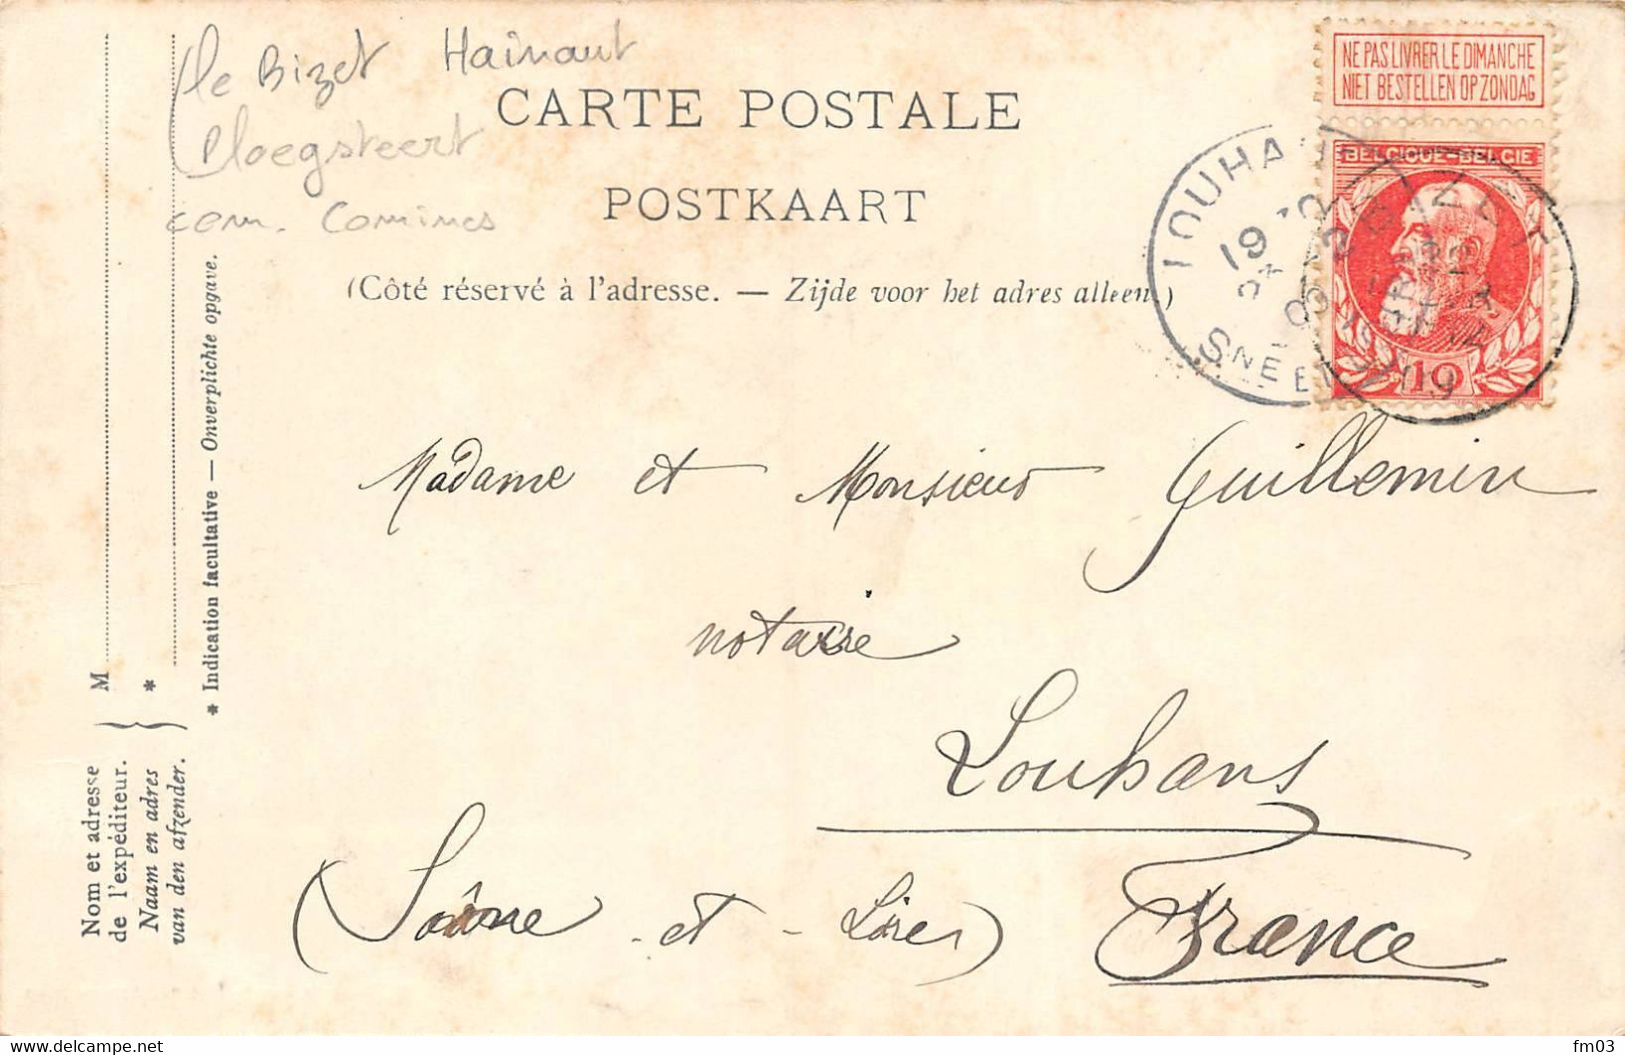 le Bizet Hainaut
Ploegsteert
com. Comines
CARTE POSTALE
POSTKAART
(Côté réservé à l'adresse. — Zijde voor het adres alleen.)
NE PAS LIVRER LE DIMANCHE
NIET BESTELLEN OP ZONDAG
BELGIQUE-BELGIE
10
LOUHA
19
SNE ET
BIZET
Madame et Monsieur Guillemin
notaire
Louhans
(Saône - et - Loire)
France
M
*
* Indication facultative — Onverplichte opgave.
Nom et adresse
de l'expéditeur.
Naam en adres
van den afzender.
delcampe.net
fm03